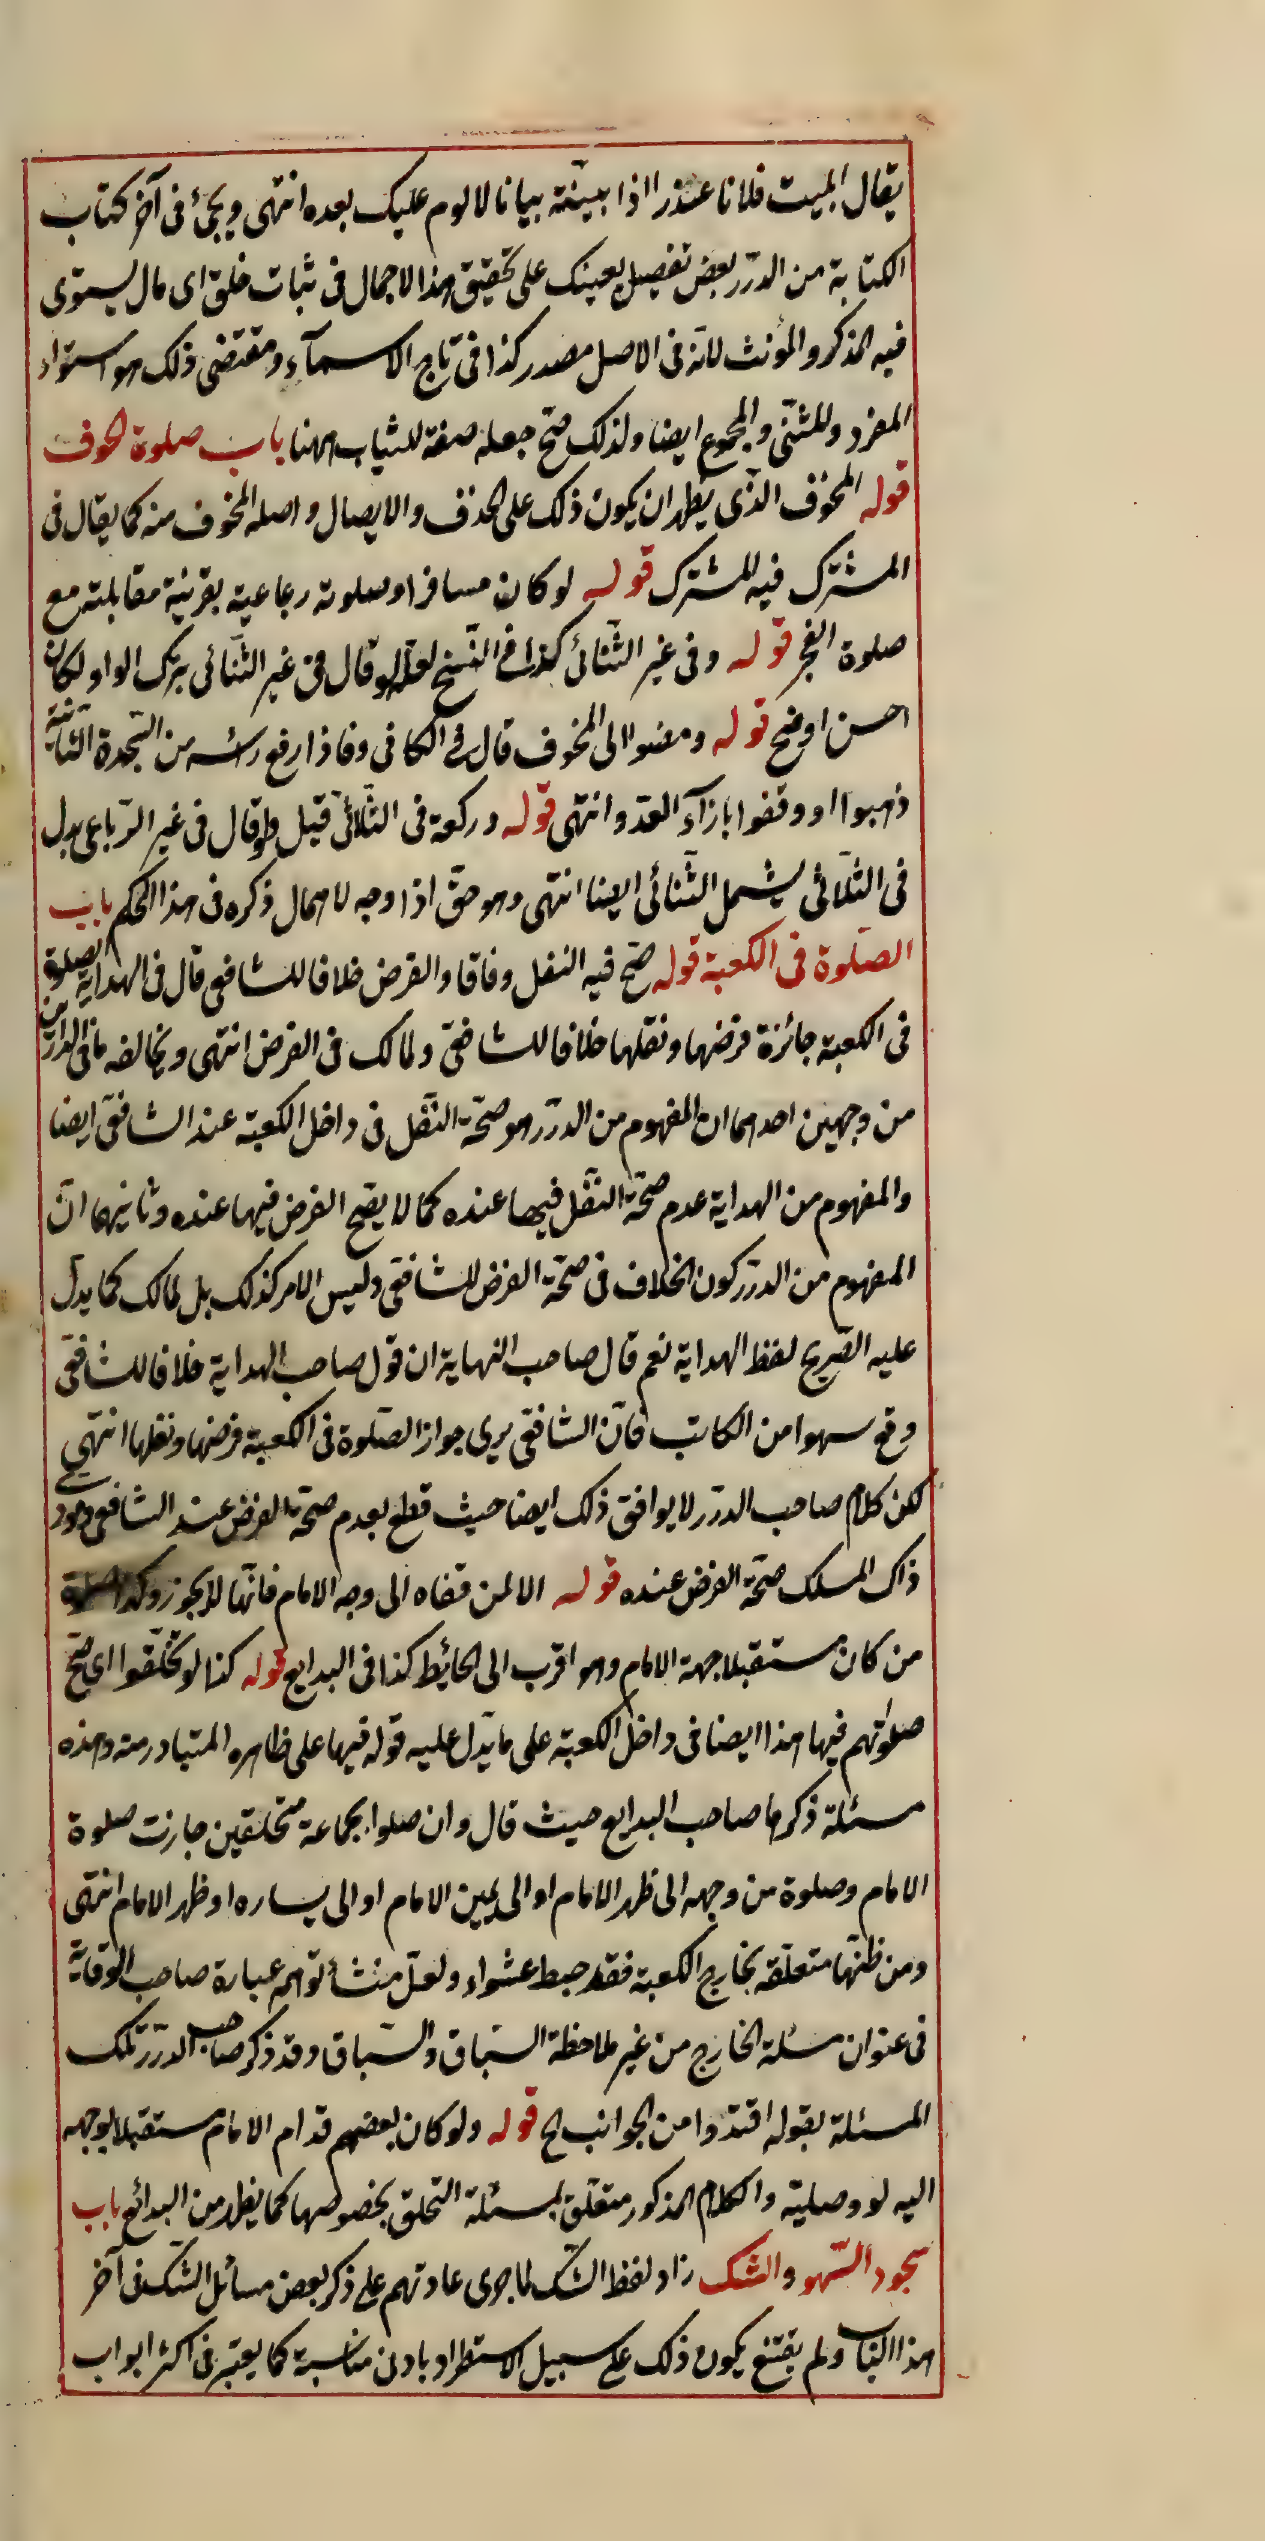 يقال ابليت فلانا عذرا اذا بينته بيانا لا لوم عليك بعده انتهى ويجئ فى آخر كتاب
الكتابة من الدرر بعض تفصيل يعينك على تحقيق هذا الاجمال فى ثبات خلق اى مال يستوى
فيه المذكر والمؤنث لانه فى الاصل مصدر كذا فى تاج الاسمآء ومقتضى ذلك هو استواء
المفرد وللمثنى والمجموع ايضا ولذلك صح جعله صفة للثياب ههنا باب صلوة الخوف
قوله المخوف الذى يظهر ان يكون ذلك على الحذف والايصال واصله المخوف منه كما يقال فى
المشترك فيه المشترك قوله لو كان مسافرا وصلوته رباعية بقرينة مقابلته مع
صلوة الفجر قوله وفى غير الثنائى كذا فى النسخ لعله لو قال فى غير الثنائى بترك الواو لكان
احسن اوضح قوله ومضوا الى المخوف قال فى الكافى وفاذا رفع رأسه من السجدة الثانية
ذهبوا او وقفوا بازآء العدو انتهى قوله وركعة فى الثلاثى قيل ولو قال فى غير الرباعى بدل
فى الثلاثى يشمل الثنائى ايضا انتهى وهو حق اذا وجه لاهمال ذكره فى هذا الحكم باب
الصلوة فى الكعبة قوله صح فيه النفل وفاقا والفرض خلافا للشافعى قال فى الهداية الصلوة
فى الكعبة جائزة فرضها ونفلها خلافا للشافعى ولمالك فى الفرض انتهى ويخالفه ما فى الدرر من
من وجهين احدهما ان المفهوم من الدرر هو صحة النفل فى داخل الكعبة عند الشافعى ايضا
والمفهوم من الهداية عدم صحة النفل فيها عنده كما لا يصح الفرض فيها عنده وثانيهما ان
المفهوم من الدرر كون الخلاف فى صحة الفرض للشافعى وليس الامر كذلك بل لمالك كما يدل
عليه الصريح لفظ الهداية نعم قال صاحب النهاية ان قول صاحب الهداية خلافا للشافعى
وقع سهوا من الكاتب فان الشافعى يرى جواز الصلوة فى الكعبة فرضها ونفلها انتهى
لكن كلام صاحب الدرر لا يوافق ذلك ايضا حيث قطع بعدم صحة الفرض عند الشافعى
ذاك المسلك صحة الفرض عنده قوله الا لمن قفاه الى وجه الامام فانها لا يجوز وكذا صلوة
من كان مستقبلا جهة الامام وهو اقرب الى الحائط كذا فى البدايع قوله كذا لو تحلقوا اى صح
صلوتهم فيها هذا ايضا فى داخل الكعبة على ما يدل عليه قوله فيها على ظاهره المتبادر منه وهذه
مسئلة ذكرها صاحب البدايع حيث قال وان صلوا بجماعة متحلقين جازت صلوة
الامام وصلوة من وجهه الى ظهر الامام او الى يمين الامام او الى يساره او ظهر الامام انتهى
ومن ظنها متعلقة بخارج الكعبة فقد خبط عشواء ولعل منشأ توهمه عبارة صاحب الوقاية
فى عنوان مسئلة الخارج من غير ملاحظة السباق والسياق وقد ذكر صاحب الدرر تلك
المسئلة بقوله اقتدوا من الجوانب الخ قوله ولو كان بعضهم قدام الامام مستقبلا بوجهه
اليه لو وصلية والكلام المذكور متعلق بمسئلة التحلق بخصوصها كما يظهر من البدائع باب
سجود السهو والشك زاد لفظ الشك لما جرى عادتهم على ذكر بعض مسائل الشك فى آخر
هذا الباب ولم يقنع بكون ذلك على سبيل الاستطراد بادنى مناسبة كما يعتبر فى اكثر ابواب